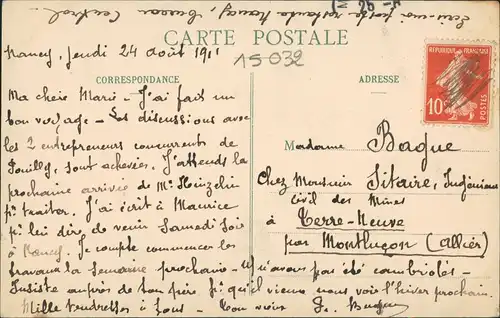 Écris-moi poste restante Nancy, Bureau Central
CARTE POSTALE
Nancy, Jeudi 24 août 1911
15-032
CORRESPONDANCE
ADRESSE
RÉPUBLIQUE FRANÇAISE
10c
POSTES
Ma chère Marie - J'ai fait un
bon voyage - Les discussions avec
les 2 entrepreneurs concurrents de
Pouilly, sont achevées. J'attends la
prochaine arrivée de Mr Hinzelin
pr traiter. J'ai écrit à Maurice
pr lui dire de venir Samedi soir
à Nancy. Je compte commencer les
travaux la semaine prochaine - n'avons pas été cambriolés -
Insiste auprès de ton père pr qu'il vienne nous voir l'hiver prochain.
Mille tendresses à tous - Ton vieux
Madame Bague
Chez Monsieur Sitaire, Ingénieur
civil des Mines
à Terre-Neuve
par Montluçon (Allier)